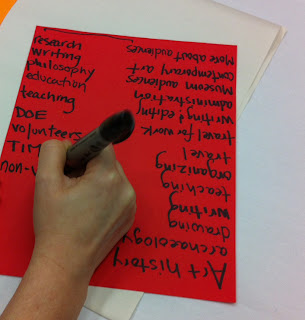 research
writing
philosophy
education
teaching
DOE
volunteers
TIM
non-
Art history
archaeology
drawing
writing
teaching
organizing
travel
travel for work
writing / editing
administration
Museum audiences
contemporary art
More about audiences